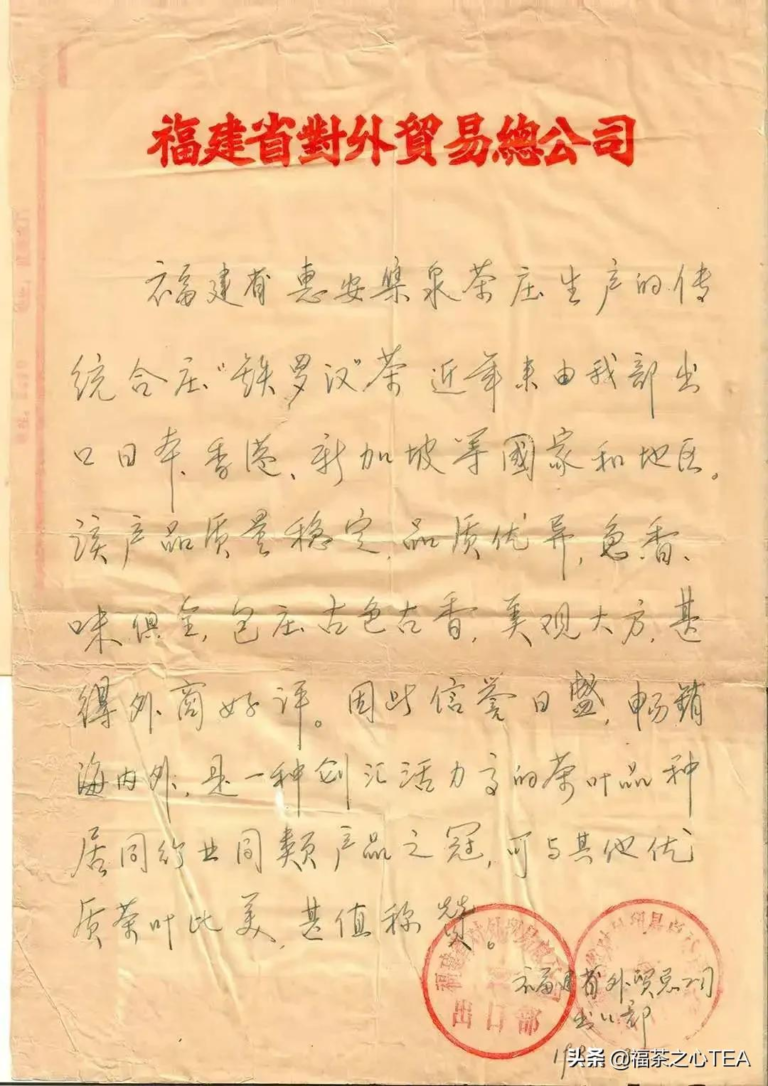 福建省對外貿易總公司
福建省惠安集泉茶庄生产的传
统合庄"铁罗汉"茶近年来由我部出
口日本、香港、新加坡等國家和地区。
该产品质量稳定,品质优异,色香、
味俱全,包庄古色古香,美观大方,甚
得外商好评。因此信誉日盛,畅销
海内外,是一种创汇活力高的茶叶品种
居同行业同类产品之冠,可与其他优
质茶叶比美,甚值称赞。
福建省外贸总公司
出口部
头条 @福茶之心TEA
出口部